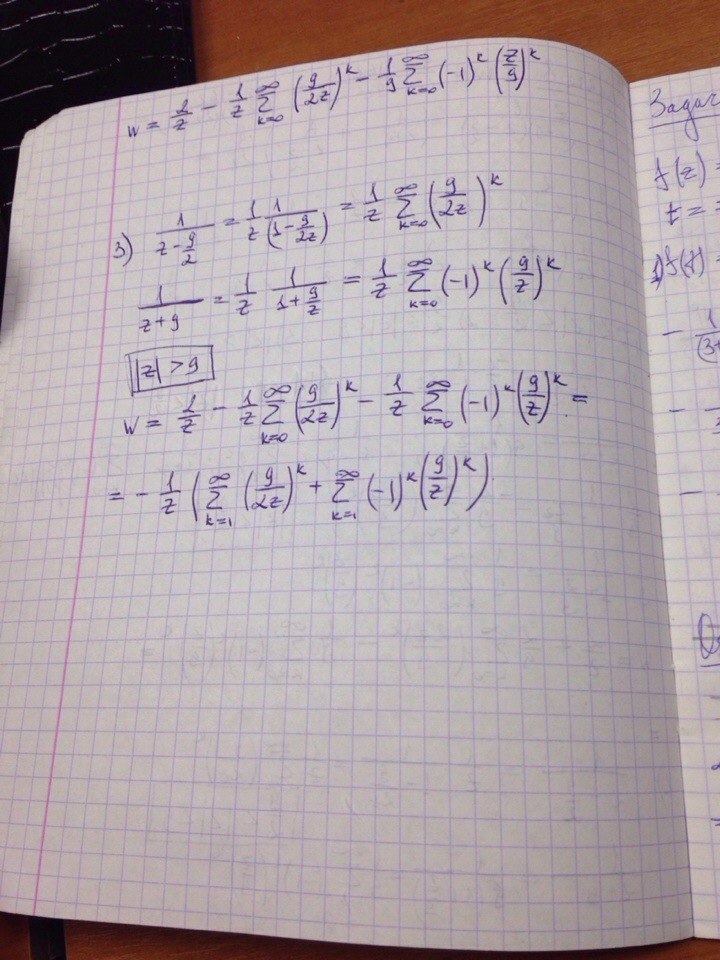 w = 2/z - 1/z ∑_{k=0}^{∞} (9/2z)^k - 1/9 ∑_{k=0}^{∞} (-1)^k (z/9)^k
3) 1/(z - 9/2) = 1/z 1/(1 - 9/2z) = 1/z ∑_{k=0}^{∞} (9/2z)^k
1/(z+9) = 1/z 1/(1 + 9/z) = 1/z ∑_{k=0}^{∞} (-1)^k (9/z)^k
|z| > 9
w = 2/z - 1/z ∑_{k=0}^{∞} (9/2z)^k - 1/z ∑_{k=0}^{∞} (-1)^k (9/z)^k =
= - 1/z (∑_{k=1}^{∞} (9/2z)^k + ∑_{k=1}^{∞} (-1)^k (9/z)^k)
Задач
f(z) =
t =
1)